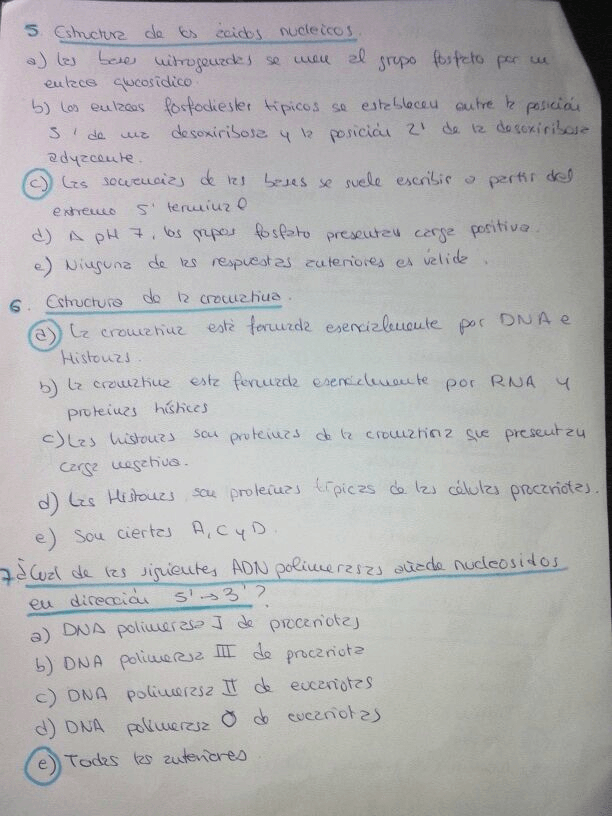 5. Estructura de los ácidos nucleicos.
a) Las bases nitrogenadas se unen al grupo fosfato por un
enlace glucosídico.
b) Los enlaces fosfodiester típicos se establecen entre la posición
5' de una desoxiribosa y la posición 2' de la desoxiribosa
adyacente.
c) Las secuencias de las bases se suele escribir a partir del
extremo 5' terminal
d) A pH 7, los grupos fosfato presentan carga positiva.
e) Ninguna de las respuestas anteriores es válida.
6. Estructura de la cromatina.
a) La cromatina está formada esencialmente por DNA e
Histonas.
b) la cromatina esta formada esencialmente por RNA y
proteinas hísticas
c) Las histonas son proteinas de la cromatina que presentan
carga negativa.
d) Las Histonas son proteinas típicas de las células procariotas.
e) Son ciertas A, C y D.
7 ¿Cual de las siguientes ADN polimerasas añade nucleosidos
en dirección 5' → 3'?
a) DNA polimerasa I de procariotas
b) DNA polimerasa III de procariota
c) DNA polimerasa II de eucariotas
d) DNA polimerasa de eucariotas
e) Todas las anteriores.